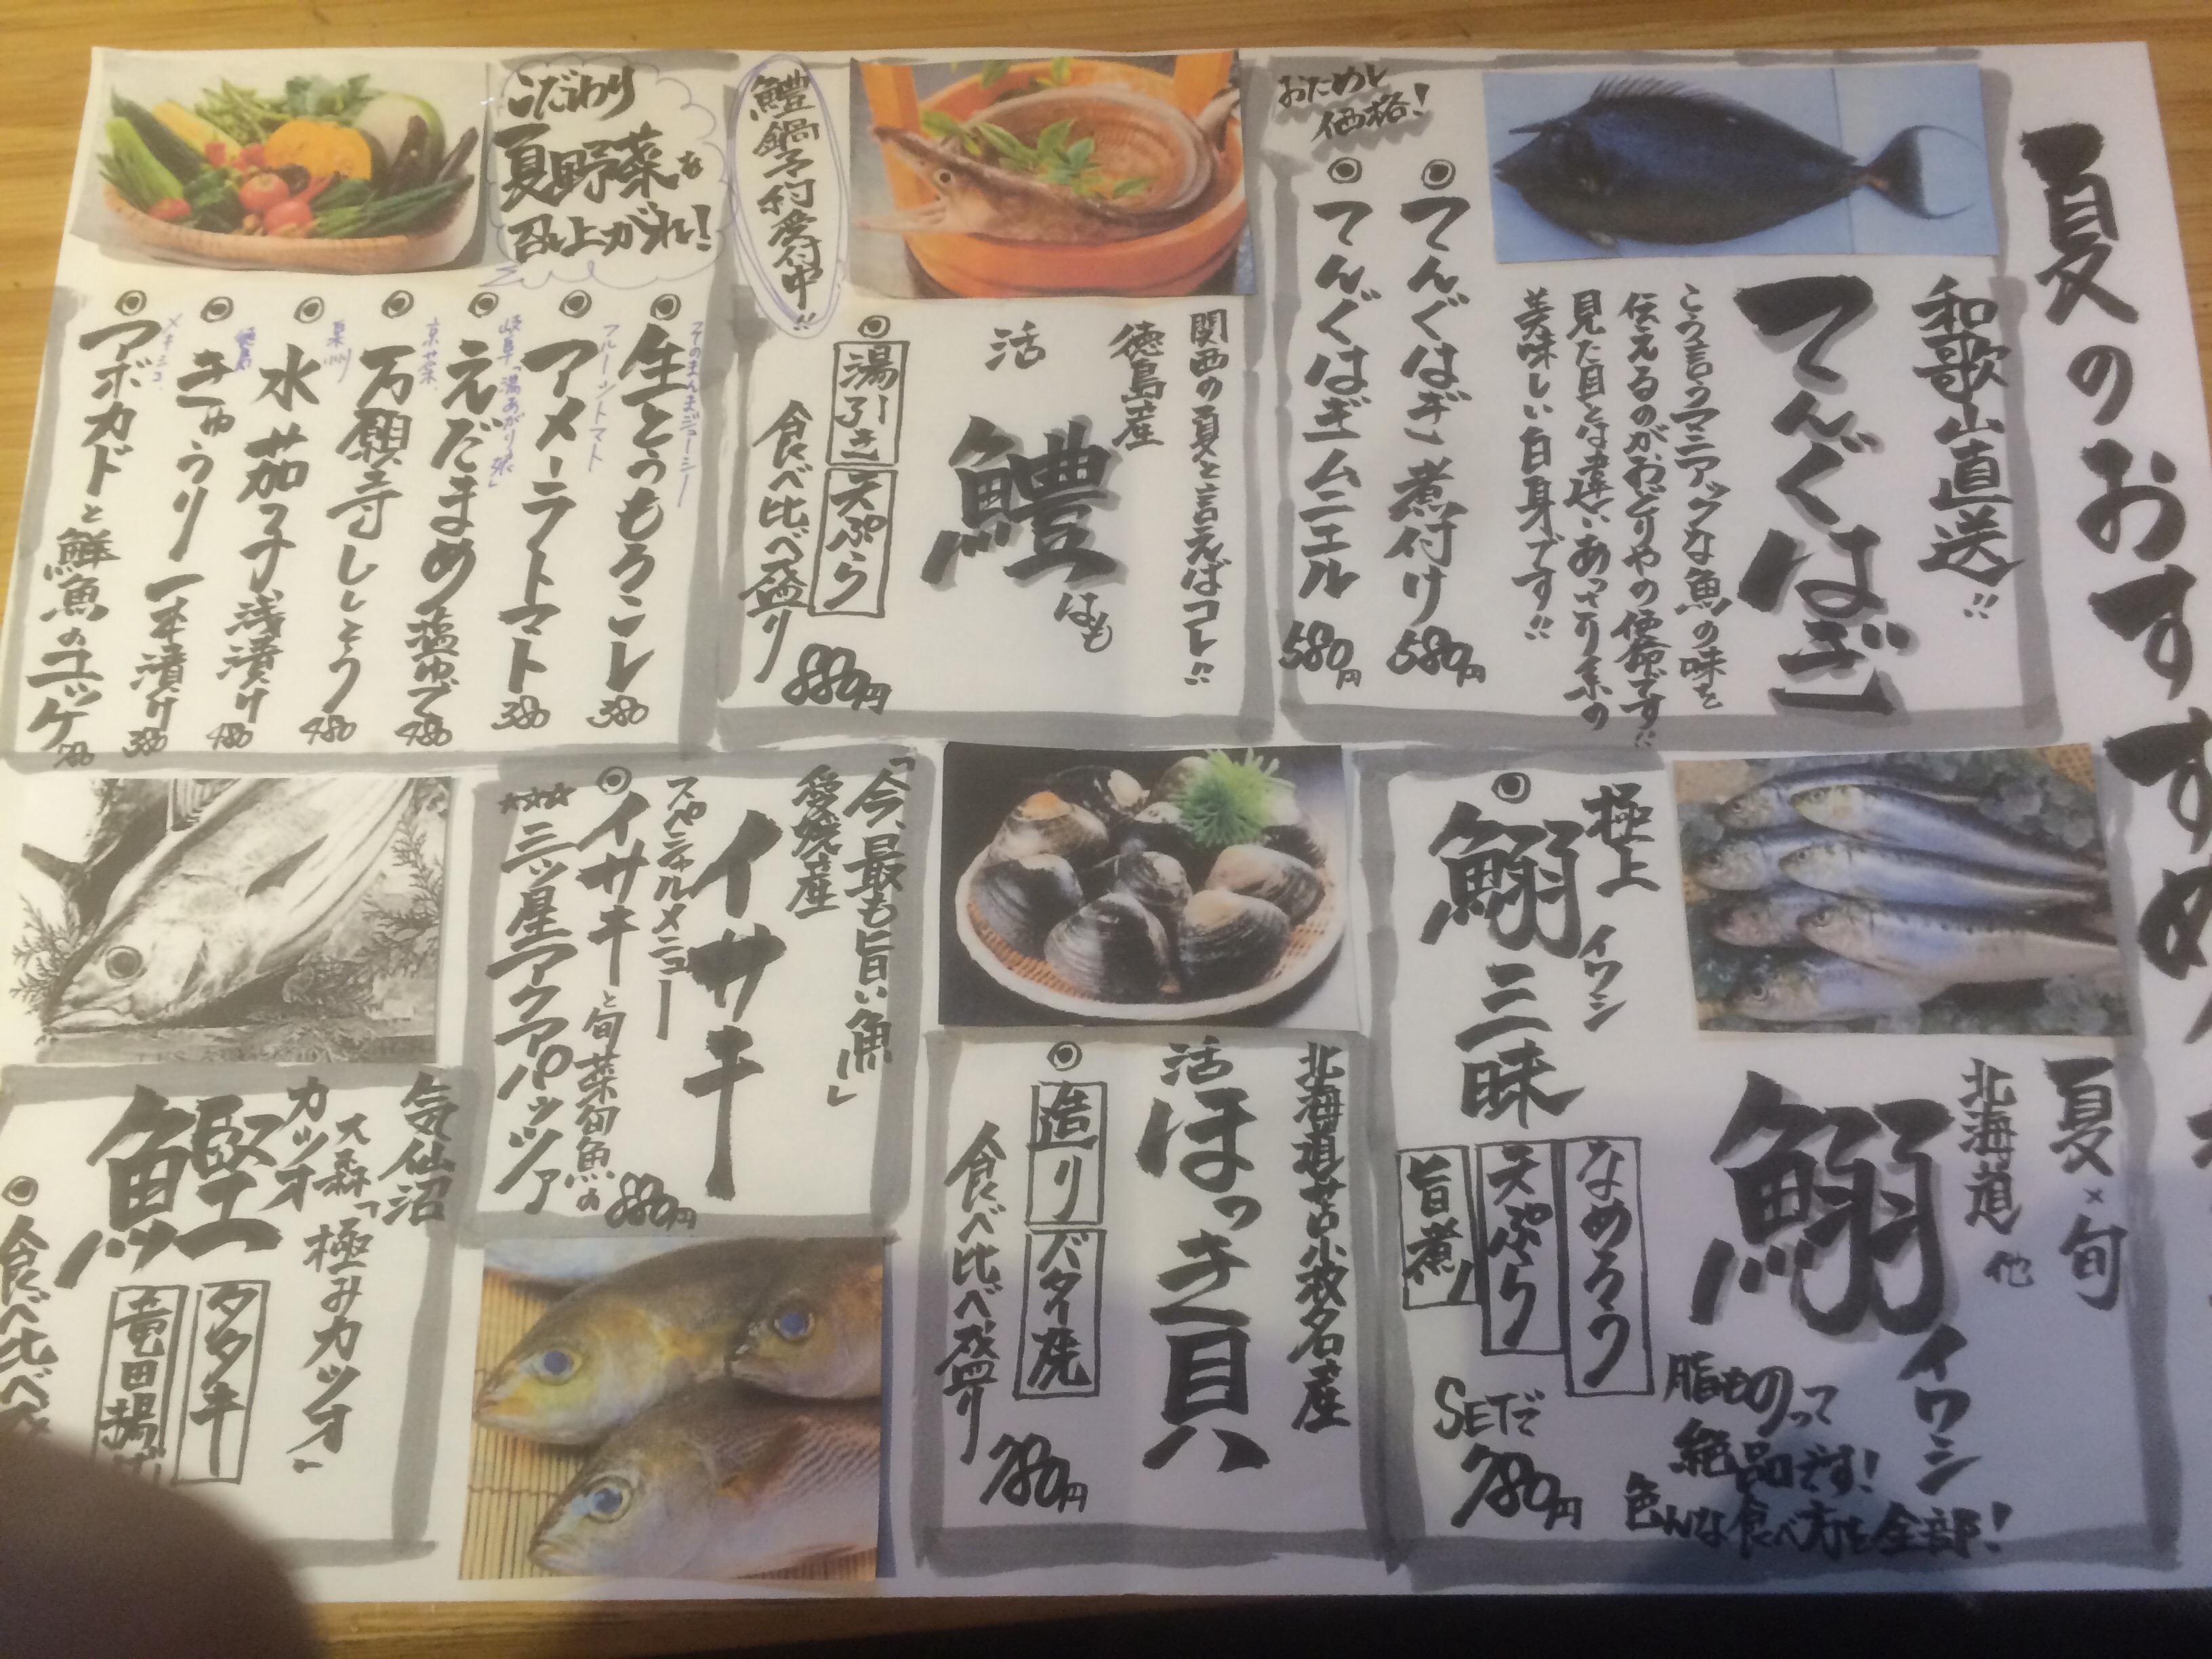 夏のおすすめ
和歌山直送!!
てんぐはぎ
こう言うマニアックな魚の味を
伝えるのがおどりやの使命です!!
見た目とは違い、あっさり系の
美味しい白身です!!
おためし
価格!
◎てんぐはぎ煮付け 580円
◎てんぐはぎムニエル 580円
関西の夏と言えばコレ!!
徳島産
活 鱧 はも
◎湯引き 天ぷら
食べ比べ盛り 880円
鱧鍋予約受付中!!
こだわり
夏野菜を
召し上がれ!
そのまんまジューシー
◎生とうもろこし 380
フルーツトマト
◎アメーラトマト 380
岐阜「湯あがり娘」
◎えだまめ塩ゆで 480
京野菜
◎万願寺ししとう 480
泉州
◎水茄子浅漬け 480
徳島
◎きゅうり一本漬け 380
メキシコ
◎アボカドと鮮魚のユッケ
夏×旬
北海道 他
鰯 イワシ
脂ものって
絶品です!
色んな食べ方を全部!
極上 イワシ
◎鰯三昧
なめろう
天ぷら
旨煮
SETで
780円
北海道苫小牧名産
活 ほっき貝
◎造り バター焼
食べ比べ盛り 780円
「今、最も旨い魚!」
愛媛産
イサキ
スペシャルメニュー
◎イサキと旬菜旬魚の
☆☆☆三ッ星アクアパッツァ 880円
気仙沼
「極みカツオ」
カツオ
鰹
タタキ
竜田揚げ
◎食べ比べ